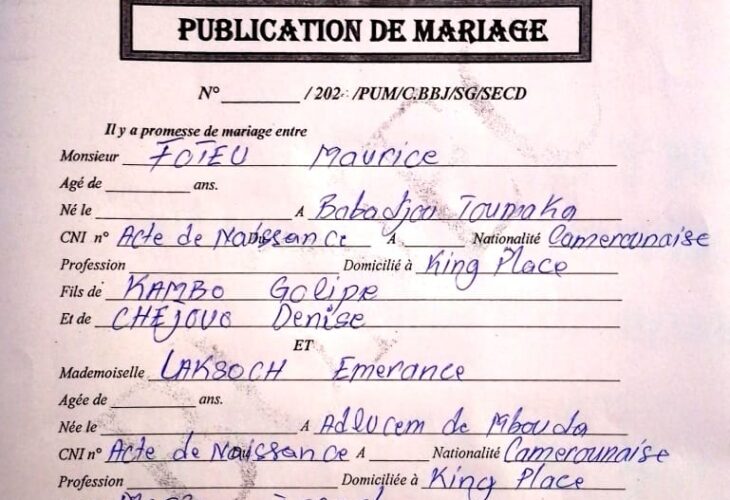 PUBLICATION DE MARIAGE
N° ________ / 202 /PUM/C.BBJ/SG/SECD
Il y a promesse de mariage entre
Monsieur FOTEU Maurice
Agé de ________ ans.
Né le ________ A Babadjou Toumaka
CNI n° Acte de Naissance A ________ Nationalité Camerounaise
Profession ________ Domicilié à King Place
Fils de KAMBO Golipe
Et de CHEJOUO Denise
ET
Mademoiselle LAKSOCH Emerance
Agée de ________ ans.
Née le ________ A Adlucem de Mbouda
CNI n° Acte de Naissance A ________ Nationalité Camerounaise
Profession ________ Domiciliée à King Place